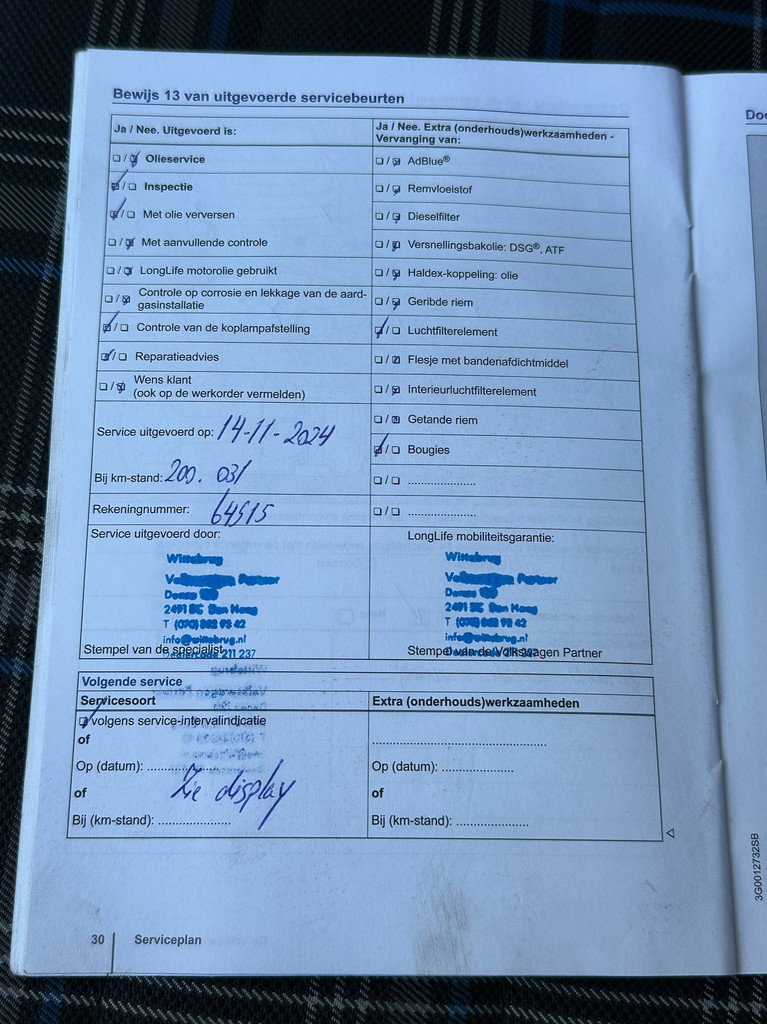 Bewijs 13 van uitgevoerde servicebeurten
Doe
Ja / Nee. Uitgevoerd is:
☐ / ☑ Olieservice
☑ / ☐ Inspectie
☑ / ☐ Met olie verversen
☐ / ☑ Met aanvullende controle
☐ / ☑ LongLife motorolie gebruikt
☐ / ☑ Controle op corrosie en lekkage van de aard-
gasinstallatie
☑ / ☐ Controle van de koplampafstelling
☑ / ☐ Reparatieadvies
☐ / ☑ Wens klant
(ook op de werkorder vermelden)
Service uitgevoerd op: 14-11-2024
Bij km-stand: 200.031
Rekeningnummer: 64515
Ja / Nee. Extra (onderhouds)werkzaamheden -
Vervanging van:
☐ / ☑ AdBlue®
☐ / ☑ Remvloeistof
☐ / ☑ Dieselfilter
☐ / ☑ Versnellingsbakolie: DSG®, ATF
☐ / ☑ Haldex-koppeling: olie
☐ / ☑ Geribde riem
☑ / ☐ Luchtfilterelement
☐ / ☑ Flesje met bandenafdichtmiddel
☐ / ☑ Interieurluchtfilterelement
☐ / ☑ Getande riem
☑ / ☐ Bougies
☐ / ☐ .....................
☐ / ☐ .....................
Service uitgevoerd door:
Wittebrug
Volkswagen Partner
Donau
2491 Den Haag
T (070) 42
info@wittebrug.nl
Dealercode 211 237
Stempel van de specialist
LongLife mobiliteitsgarantie:
Wittebrug
Volkswagen Partner
Donau
2491 Den Haag
T (070) 42
info@wittebrug.nl
Dealercode 211 237
Stempel van de Volkswagen Partner
Volgende service
Servicesoort
☑ volgens service-intervalindicatie
of
Op (datum): .....................
Zie display
of
Bij (km-stand): .....................
Extra (onderhouds)werkzaamheden
.....................
Op (datum): .....................
of
Bij (km-stand): .....................
3G0012732SB
30 Serviceplan